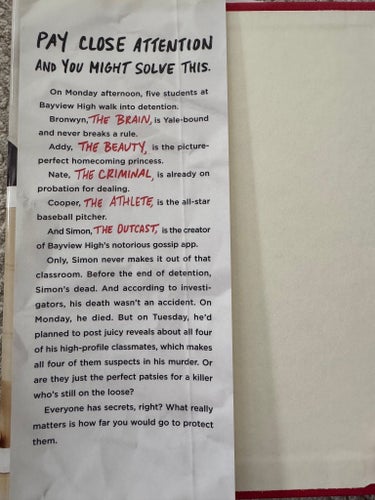 PAY CLOSE ATTENTION
AND YOU MIGHT SOLVE THIS.
On Monday afternoon, five students at
Bayview High walk into detention.
Bronwyn, THE BRAIN, is Yale-bound
and never breaks a rule.
Addy, THE BEAUTY, is the picture-
perfect homecoming princess.
Nate, THE CRIMINAL, is already on
probation for dealing.
Cooper, THE ATHLETE, is the all-star
baseball pitcher.
And Simon, THE OUTCAST, is the creator
of Bayview High's notorious gossip app.
Only, Simon never makes it out of that
classroom. Before the end of detention,
Simon's dead. And according to investi-
gators, his death wasn't an accident. On
Monday, he died. But on Tuesday, he'd
planned to post juicy reveals about all four
of his high-profile classmates, which makes
all four of them suspects in his murder. Or
are they just the perfect patsies for a killer
who's still on the loose?
Everyone has secrets, right? What really
matters is how far you would go to protect
them.